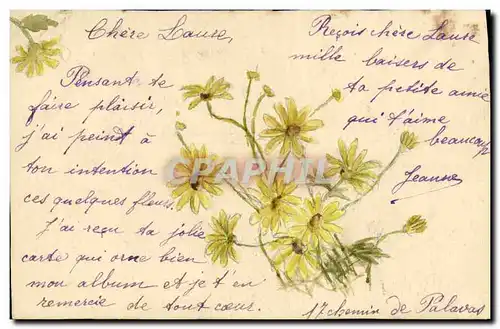 Chère Laure,
Pensant te
faire plaisir,
j'ai peint à
ton intention
ces quelques fleurs.
J'ai reçu ta jolie
carte qui orne bien
mon album et je t'en
remercie de tout cœur.
Reçois chère Laure
mille baisers de
ta petite amie
qui t'aime
beaucoup
Jeanne
17 chemin de Palavas
CPARAMA.COM